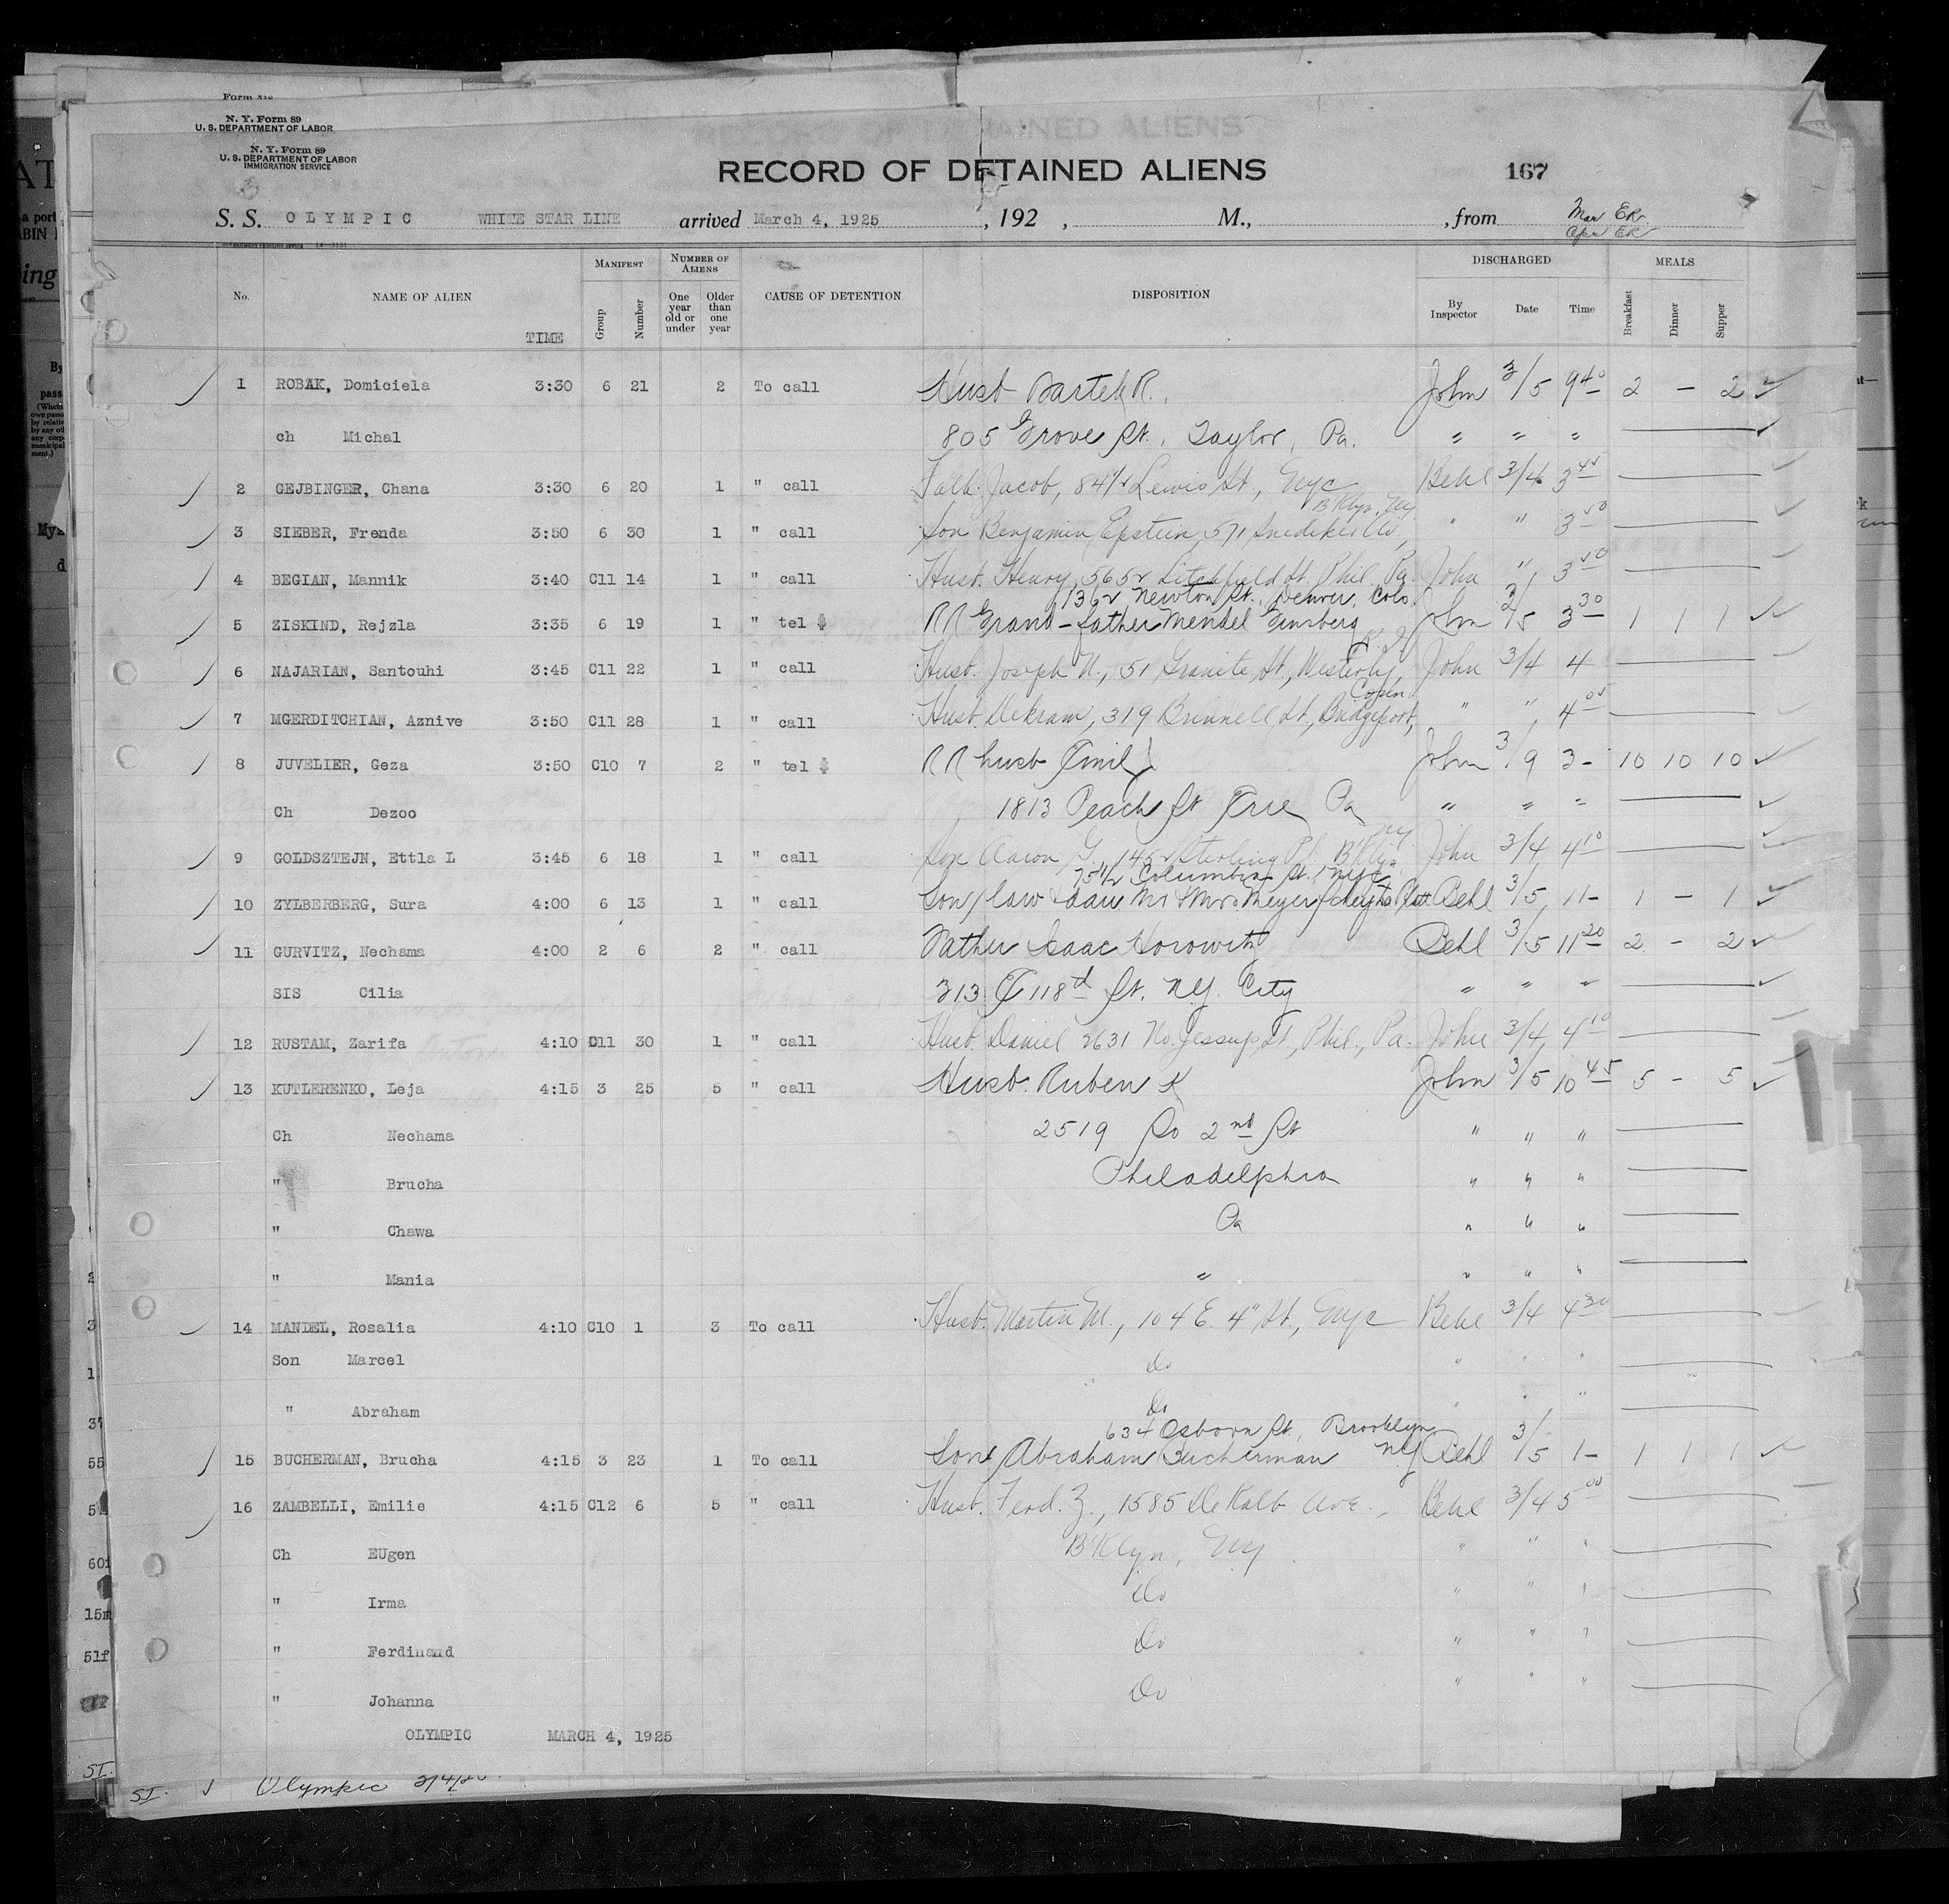 N. Y. Form 89
U. S. DEPARTMENT OF LABOR
N. Y. Form 89
U. S. DEPARTMENT OF LABOR
IMMIGRATION SERVICE
RECORD OF DETAINED ALIENS 167
S. S. OLYMPIC WHITE STAR LINE arrived March 4, 1925 , 192 , M., , from
MANIFEST NUMBER OF ALIENS DISCHARGED MEALS
No. NAME OF ALIEN TIME Group Number One year old or under Older than one year CAUSE OF DETENTION DISPOSITION By Inspector Date Time Breakfast Dinner Supper
1 ROBAK, Domiciela 3:30 6 21 2 To call Husb Bartek R. John 3/5 9 40 2 - 2 ✓
ch Michal 805 Grove St., Taylor, Pa. " " " ✓
2 GEJBINGER, Chana 3:30 6 20 1 " call Fath. Jacob, 84 1/2 Lewis St., Nyc Behl 3/4 3 45
Bklyn, Ny
3 SIEBER, Frenda 3:50 6 30 1 " call Son Benjamin Epstein, 571 Snediker Av, " " 3 50
4 BEGIAN, Mannik 3:40 C11 14 1 " call Husb. Henry, 5652 Litchfield St. Phil. Pa. John " 3 50
1362 Newton St., Denver, Colo
5 ZISKIND, Rejzla 3:35 6 19 1 " tel $ RR Grand-father Mendel Ginsberg John 3/5 3 30 1 1 1 ✓
R. I.
6 NAJARIAN, Santouhi 3:45 C11 22 1 " call Husb. Joseph N., 51 Granite St, Westerly, John 3/4 4
Conn
7 MGERDITCHIAN, Aznive 3:50 C11 28 1 " call Husb. Dekram, 319 Brinnell St., Bridgeport, " " 4 05
8 JUVELIER, Geza 3:50 C10 7 2 " tel $ RR husb Emil John 3/9 3- 10 10 10 ✓
Ch Dezoo 1813 Peach St Erie Pa " " " ✓
Ny
9 GOLDSZTEJN, Ettla L 3:45 6 18 1 " call Son Aaron G., 1452 Sterling Pl. Bklyn John 3/4 4 10
75 1/2 Columbia St., Nyc
10 ZYLBERBERG, Sura 4:00 6 13 1 " call Son/law & dau Mr & Mrs. Meyer Behl 3/5 11- 1 - 1 ✓
11 GURVITZ, Nechama 4:00 2 6 2 " call Father Isaac Horowitz Behl 3/5 11 20 2 - 2 ✓
SIS Cilia 313 E 118th St. N.Y. City " " " ✓
12 RUSTAM, Zarifa 4:10 C11 30 1 " call Husb. Daniel 2631 No. Jessup St., Phil., Pa. John 3/4 4 10
13 KUTLERENKO, Leja 4:15 3 25 5 " call Husb. Ruben K John 3/5 10 45 5 - 5 ✓
Ch Nechama 2519 So 2nd St " " "
" Brucha Philadelphia " " "
" Chawa Pa " " "
" Mania " " " "
14 MANDEL, Rosalia 4:10 C10 1 3 To call Husb. Martin M., 104 E. 4" St., Nyc Behl 3/4 4 30
Son Marcel Do " " "
" Abraham Do " " "
634 Osborn St., Brooklyn
15 BUCHERMAN, Brucha 4:15 3 23 1 To call Son Abraham Bucherman NY Behl 3/5 1- 1 1 1 ✓
16 ZAMBELLI, Emilie 4:15 C12 6 5 " call Husb. Ferd. Z., 1585 DeKalb Ave., Behl 3/4 5 00
Ch EUgen Bklyn, Ny " " "
" Irma Do " " "
" Ferdinand Do " " "
" Johanna Do " " "
OLYMPIC MARCH 4, 1925
SI. Olympic